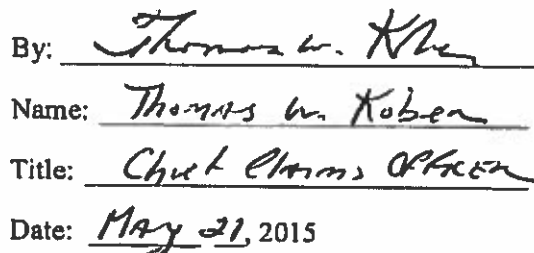 By: Thomas W. Kober
Name: Thomas W. Kober
Title: Chief Claims Officer
Date: May 21, 2015